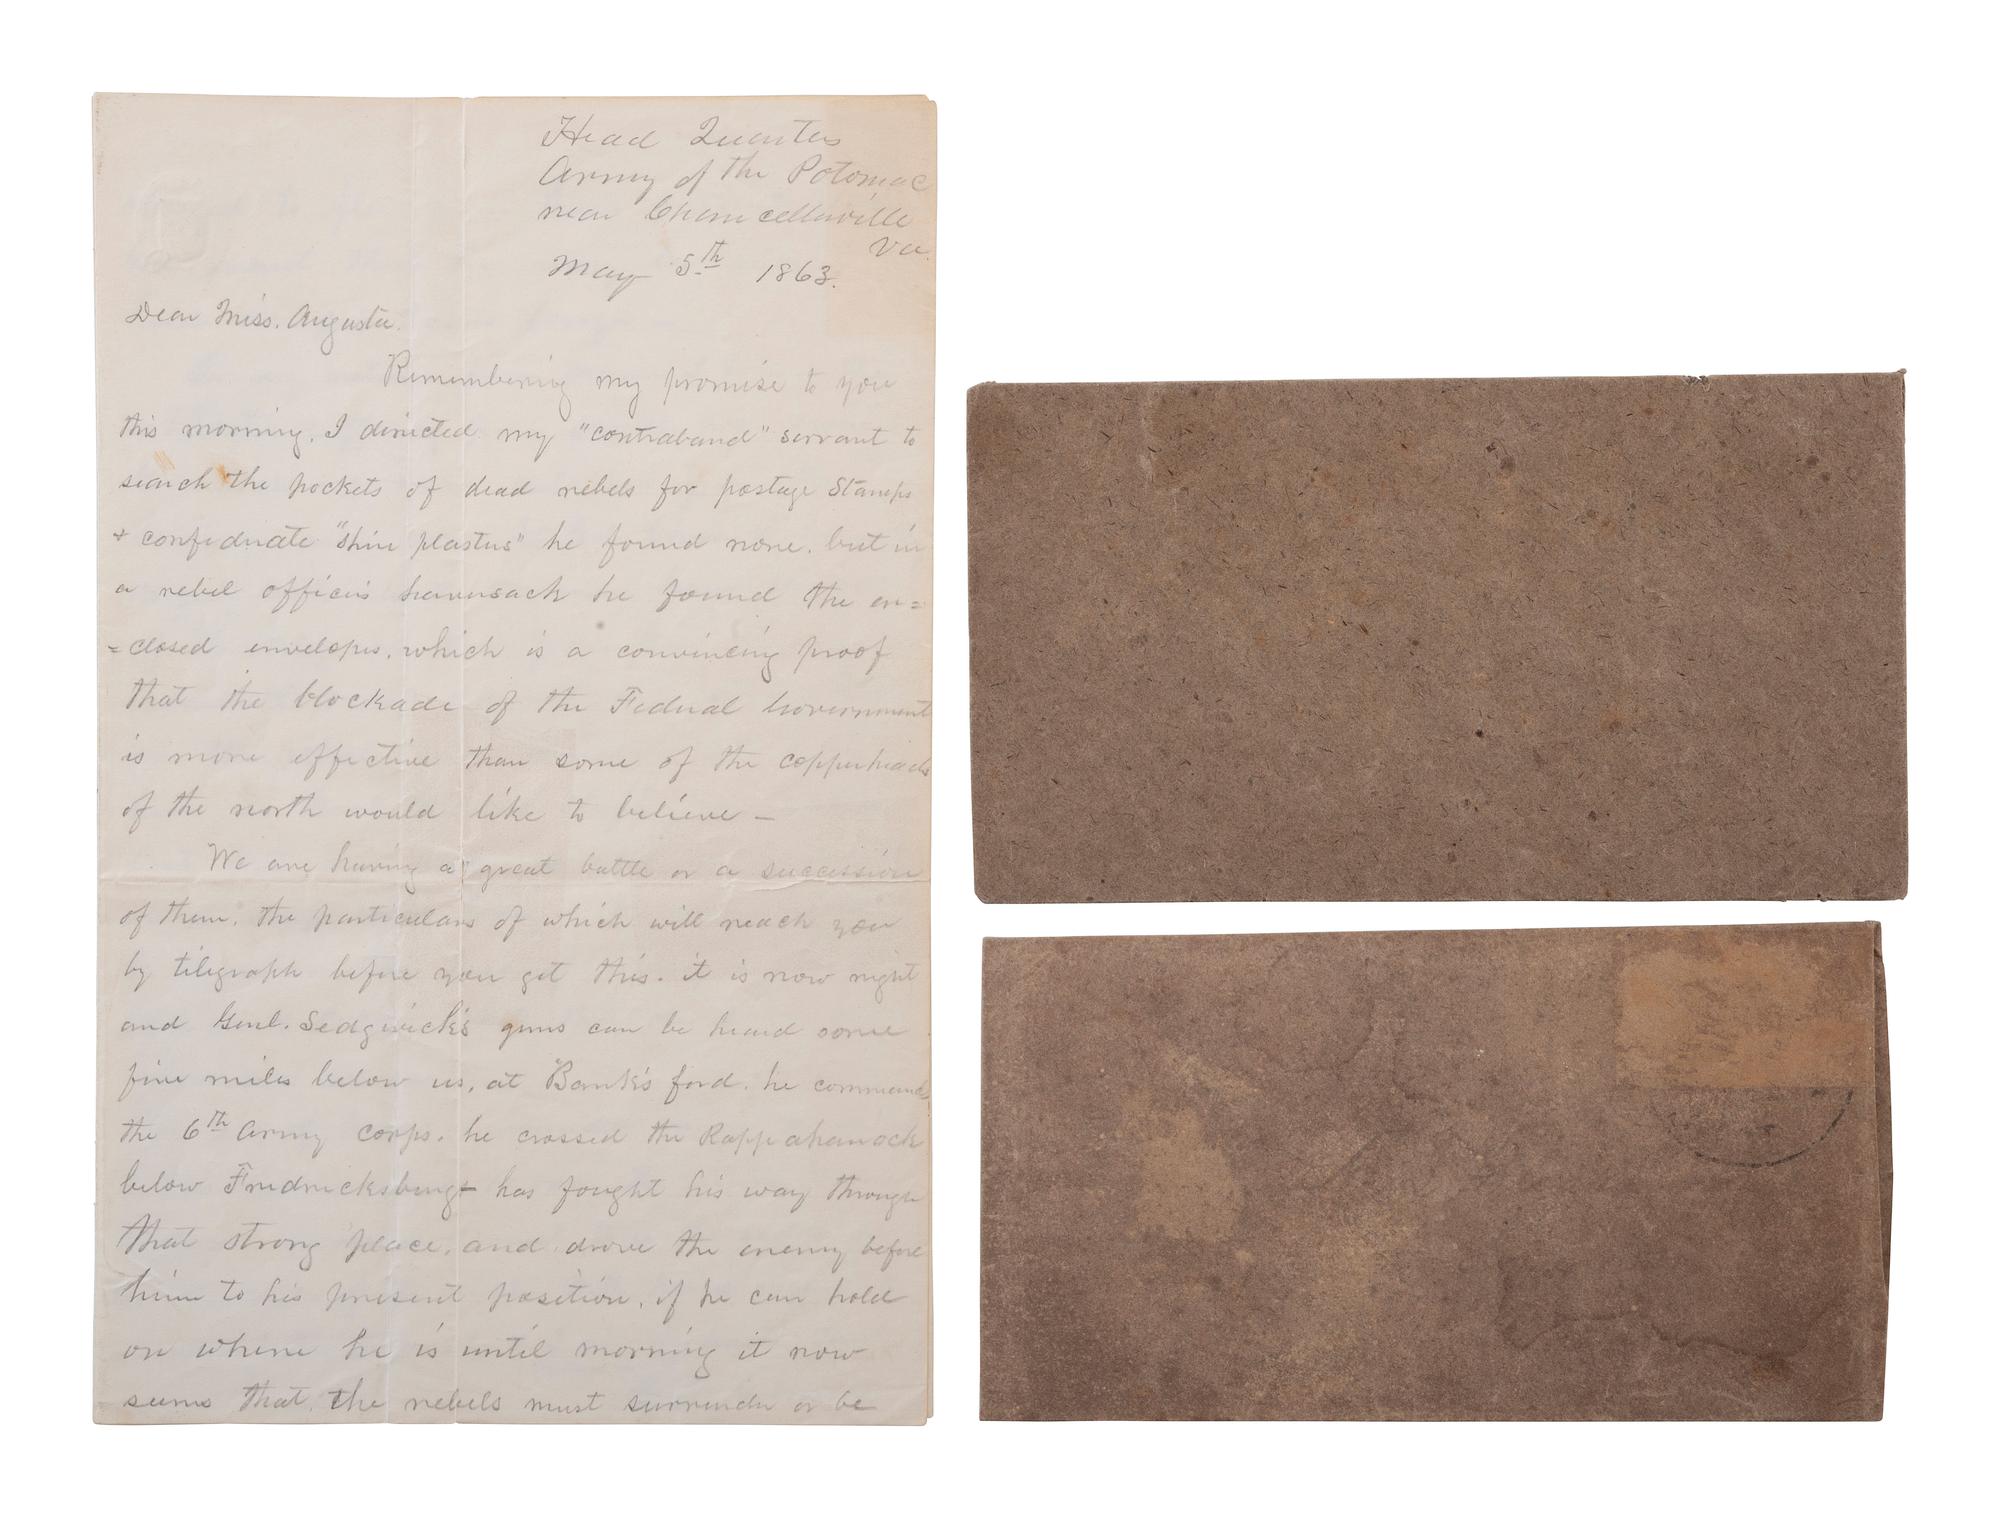 Head Quarters
Army of the Potomac
near Chancellorville
Va.
May 5th 1863.
Dear Miss. Augusta.
Remembering my promise to you
this morning, I directed my "contraband" servant to
search the pockets of dead rebels for postage Stamps
+ confederate "shin plasters" he found none. but in
a rebel officers haversack he found the en=
=closed envelopes, which is a convincing proof
that the blockade of the Federal Government
is more effective than some of the copperheads
of the north would like to believe —
We are having a great battle or a succession
of them, the particulars of which will reach you
by telegraph before you get this. it is now night
and Genl. Sedgwick's guns can be heard some
five miles below us, at Bank's ford. he commands
the 6th Army corps. he crossed the Rappahanock
below Fredricksburg + has fought his way through
that strong place, and drove the enemy before
him to his present position, if he can hold
on where he is until morning it now
seems that, the rebels must surrender or be